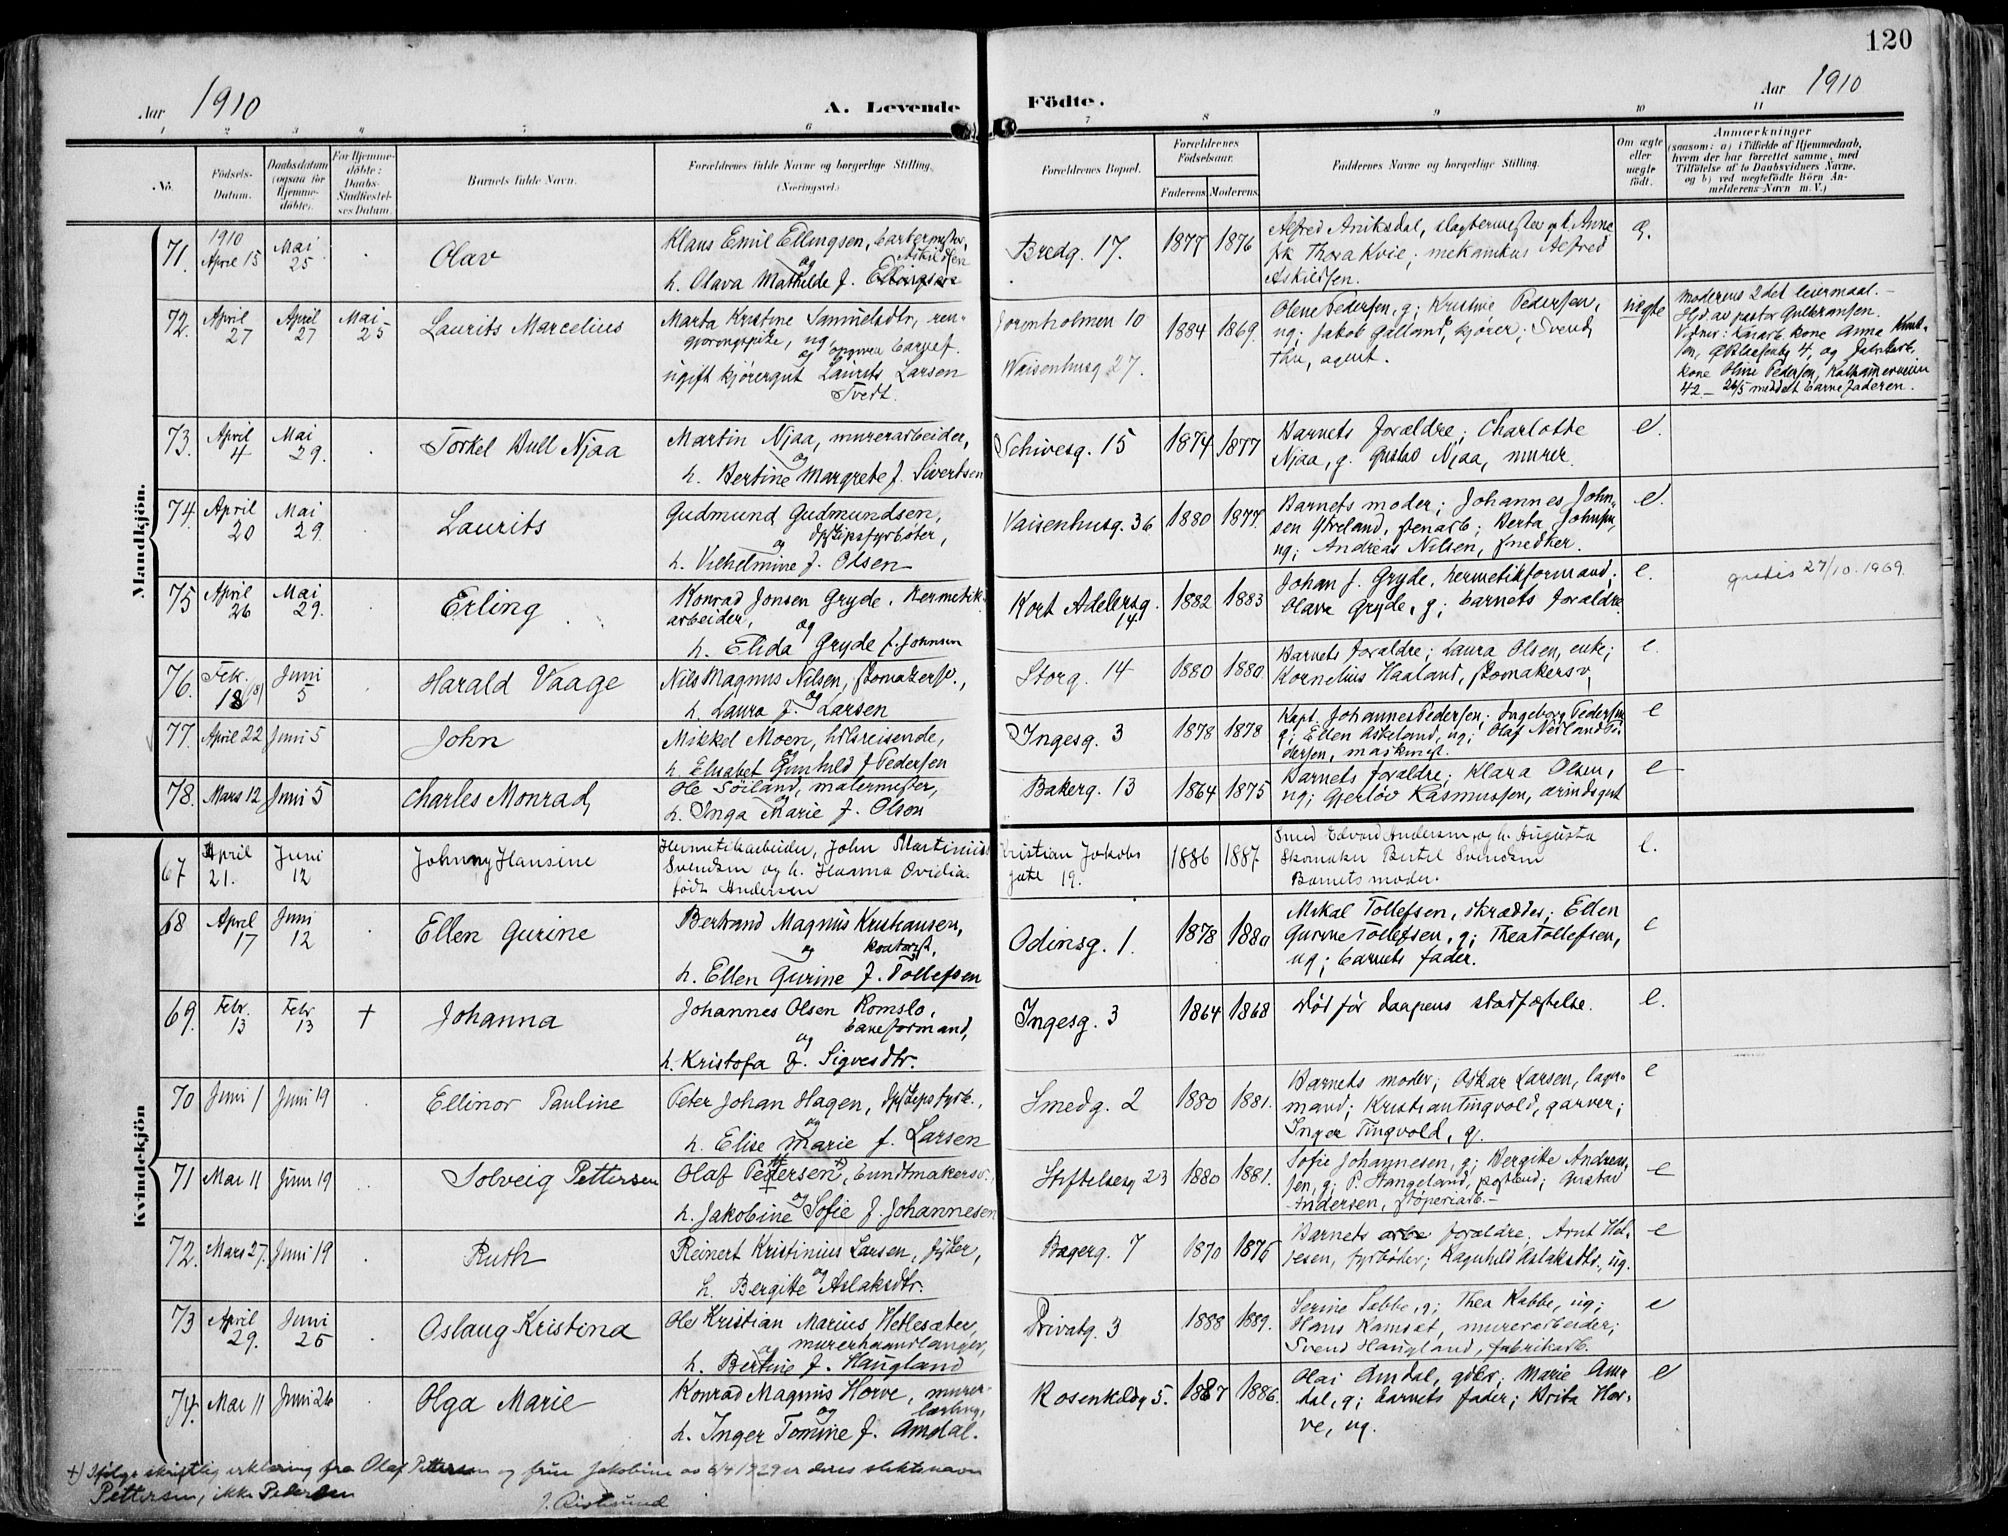 120
Aar 1910
A. Levende
Födte.
Aar 1910
1 2 3 4 5 6 7 8 9 10 11
No.
Födsels-
Datum.
Daabsdatum
(ogsaa for
Hjemme-
döbte).
For Hjemme-
döbte:
Daabs-
Stadfæstel-
ses Datum.
Barnets fulde Navn.
Forældrenes fulde Navne og borgerlige Stilling.
(Næringsvei.)
Forældrenes Bopæl.
Forældrenes
Födselsaar.
Faderens. Moderens.
Faddernes Navne og borgerlige Stilling.
Om ægte
eller
uægte
födt.
Anmærkninger
(saasom: a) i Tilfælde af Hjemmedaab,
hvem der har forrettet samme, med
Tilföielse af to Daabsvidners Navne,
og b) ved uægtefödte Börn An-
melderens Navn m. V.)
Mandkjön.
71. 1910 April 15 Mai 25 Olav
Klaus Emil Ellingsen, barbermester,
og Askildsen
h. Olava Mathilde f. Ellingsen
Bredg. 17. 1877 1876
Alfred Aniksdal, slagtermester og h. Anne
frk Thora Kvie; mekanikus Alfred
Askildsen.
æ.
72. April 27 April 27 Mai 25 Laurits Marcelius
Marta Kristine Samuelsdtr, ren-
gjøringspike, ug,
og opgiven barnef.
ugift kjørergut Laurits Larsen
Tvedt.
Jorenholmen 10
Waisenhusg 27.
1884 1869.
Olene Pedersen, g; Kristine Pedersen,
ug; Jakob Galland, kjører; Svend
Thu, agent.
uægte
Moderens 2det leiermaal.
Hjd av pastor Gulbransen.
Vidner: Kaiarb. kone Anna
4, og fabrikarb.
kone Oline Pedersen,
42 – 26/5 meddelt barnefaderen.
73. April 4 Mai 29. Torkel Bull Njaa
Martin Njaa, murerarbeider,
og
h. Bertine Margrete f. Sivertsen
Schivesg. 15 1874 1877
Barnets forældre; Charlotte
Njaa, g. Gustav Njaa, murer.
e.
74. April 20 Mai 29. Laurits
Gudmund Gudmundsen,
og dpskipsfyrbøter,
h. Vilhelmine f. Olsen
Vaisenhusg. 36 1880 1877.
Barnets moder; Johannes John-
sen Ytreland, stenarb; Berta Johnsen,
ug; Andreas Nilsen, snedker.
e.
75 April 26 Mai 29. Erling
Konrad Jonsen Gryde. Hermetik-
arbeider, og
h. Elida Gryde f. Johnsen
Kort Adelersg. 14. 1882 1883
Johan J. Gryde, hermetikformand;
Olava Gryde, g; barnets forældre.
e.
gratis 27/10. 1969.
76. Febr. 18 (18) Juni 5 Harald Vaage
Nils Magnus Nilsen, skomakersv.,
og
h. Laura f. Larsen
Storg. 14 1880 1880.
Barnets forældre; Laura Olsen, enke;
Kornelius Haaland, skomakersv,
e.
77. April 22 Juni 5 John
Mikkel Moen, hdlsreisende,
og
h. Elisabet Gunhild f Pedersen
Ingesg. 3 1878 1878
Kapt. Johannes Pedersen; Ingeborg Pedersen
g; Ellen Askeland, ug; Olaf Nedland Pe-
dersen, maskinist.
e
78. Mars 12 Juni 5 Charles Monrad
Ole Söiland, malermester,
og
h. Inga Marie f. Olsen
Bakerg. 13 1864 1875
Barnets forældre; Klara Olsen,
ug; Gjerløv Rasmussen, ærindsgut
e
Kvindekjön
67 April 21. Juni 12 Johnny Hansine
Hermetikarbeider, John Martinius
Svendsen og h. Hanna Ovidia
født Andersen
Kristian Jakobs
gate 19. 1886 1887.
Smed Edvard Andersen og h. Augusta
Skomaker Bertel Svendsen
Barnets moder.
e.
68 April 17 Juni 12 Ellen Gurine
Bertrand Magnus Kristiansen,
og kontorist,
h. Ellen Gurine f. Tollefsen
Odinsg. 1. 1878 1880
Mikal Tollefsen, skrædder; Ellen
Gurine Tollefsen, g; Thea Tollefsen,
ug; barnets fader.
e
69. Febr. 13 Febr. 13 † Johanna
Johannes Olsen Romslo,
baneformand,
og
h. Kristofa f. Sigvesdtr.
Ingesg. 3 1864 1868
Død før daapens stadfæstelse.
e.
70 Juni 1 Juni 19 Ellinor Pauline
Peter Johan Hagen, dpskipsfyrb.,
og
h. Elise Marie f. Larsen
Smedg. 2 1880 1881.
Barnets moder; Oskar Larsen, lager-
mand; Kristian Tingvold, garver;
Inger Tingvold, g.
e
71 Mai 11 Juni 19 Solveig Pettersen
Olaf Pettersen, bundtmakersv.,
og
h. Jakobine Sofie f. Johannesen
Stiftelsesg 23 1880 1881.
Sofie Johannesen, g; Bergitte Andrea-
sen, g; P. Stangeland, postbud; Gustav
Andersen, støperiarb.
e
72. Mars 27. Juni 19 Ruth
Reinert Kristinius Larsen, fisker,
og
h. Bergitte Aslaksdtr.
Bagerg. 7 1870 1876
Barnets forældre. Arnt Hel-
jesen, fyrbøter; Ragnhild Aslaksdtr. ug.
e
73 April 29. Juni 26 Oslaug Kristina
Ole Kristian Marius Hetlesæter,
og murerhaandlanger,
h. Bertine f. Haugland
Privatg. 3 1888 1889.
Serine Sæbbe, g; Thea Rabbe, ug;
Hans Ramset, murerarbeider;
Svend Haugland, fabrikarb.
e
74. Mai 11 Juni 26 Olga Marie
Konrad Magnus Horve, murer-
og lærling,
h. Inger Tomine f. Amdal.
Rosenkildeg 5. 1887 1886.
Olai Amdal, gdbr; Marie Am-
dal, g; barnets fader; Brita Hor-
ve, ug.
e
+) Ifølge skriftlig erklæring fra Olaf Pettersen og fru Jakobine av 6/4 1929 er deres slektsnavn
Pettersen, ikke Pedersen